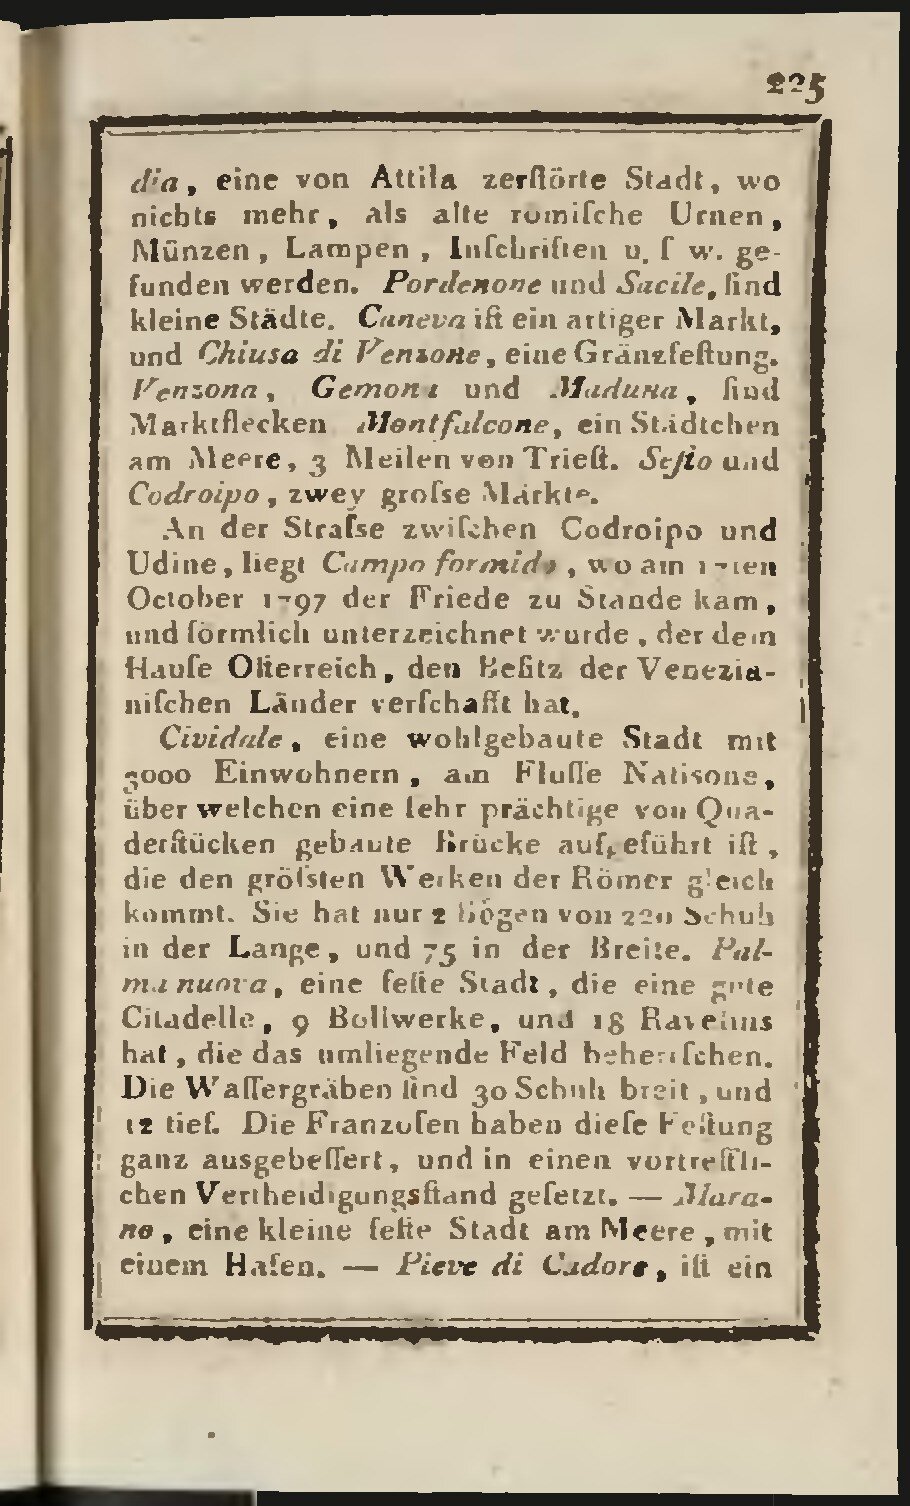 225
dia, eine von Attila zerſtörte Stadt, wo
nichts mehr, als alte römiſche Urnen,
Münzen, Lampen, Inſchriften u. ſ w. ge-
funden werden. Pordenone und Sacile, ſind
kleine Städte. Caneva iſt ein artiger Markt,
und Chiusa di Venzone, eine Gränzfeſtung.
Venzona, Gemona und Maduna, ſind
Marktflecken Montfalcone, ein Städtchen
am Meere, 3 Meilen von Trieſt. Seſto und
Codroipo, zwey groſse Märkte.
An der Straſse zwiſchen Codroipo und
Udine, liegt Campo formido, wo am 17ten
October 1797 der Friede zu Stande kam,
und förmlich unterzeichnet wurde, der dem
Hauſe Oſterreich, den Beſitz der Venezia-
niſchen Länder verſchafft hat.
Cividale, eine wohlgebaute Stadt mit
3000 Einwohnern, am Fluſſe Natisone,
über welchen eine ſehr prächtige von Qua-
derſtücken gebaute Brücke aufgeführt iſt,
die den gröſsten Werken der Römer gleich
kommt. Sie hat nur 2 Bögen von 220 Schuh
in der Lange, und 75 in der Breite. Pal-
ma nuova, eine feſte Stadt, die eine gute
Citadelle, 9 Bollwerke, und 18 Ravelins
hat, die das umliegende Feld beherrſchen.
Die Waſſergräben ſind 30 Schuh breit, und
12 tief. Die Franzoſen haben dieſe Feſtung
ganz ausgebeſſert, und in einen vortreffli-
chen Vertheidigungsſtand geſetzt. — Mara-
no, eine kleine feſte Stadt am Meere, mit
einem Hafen. — Pieve di Cadore, iſt ein